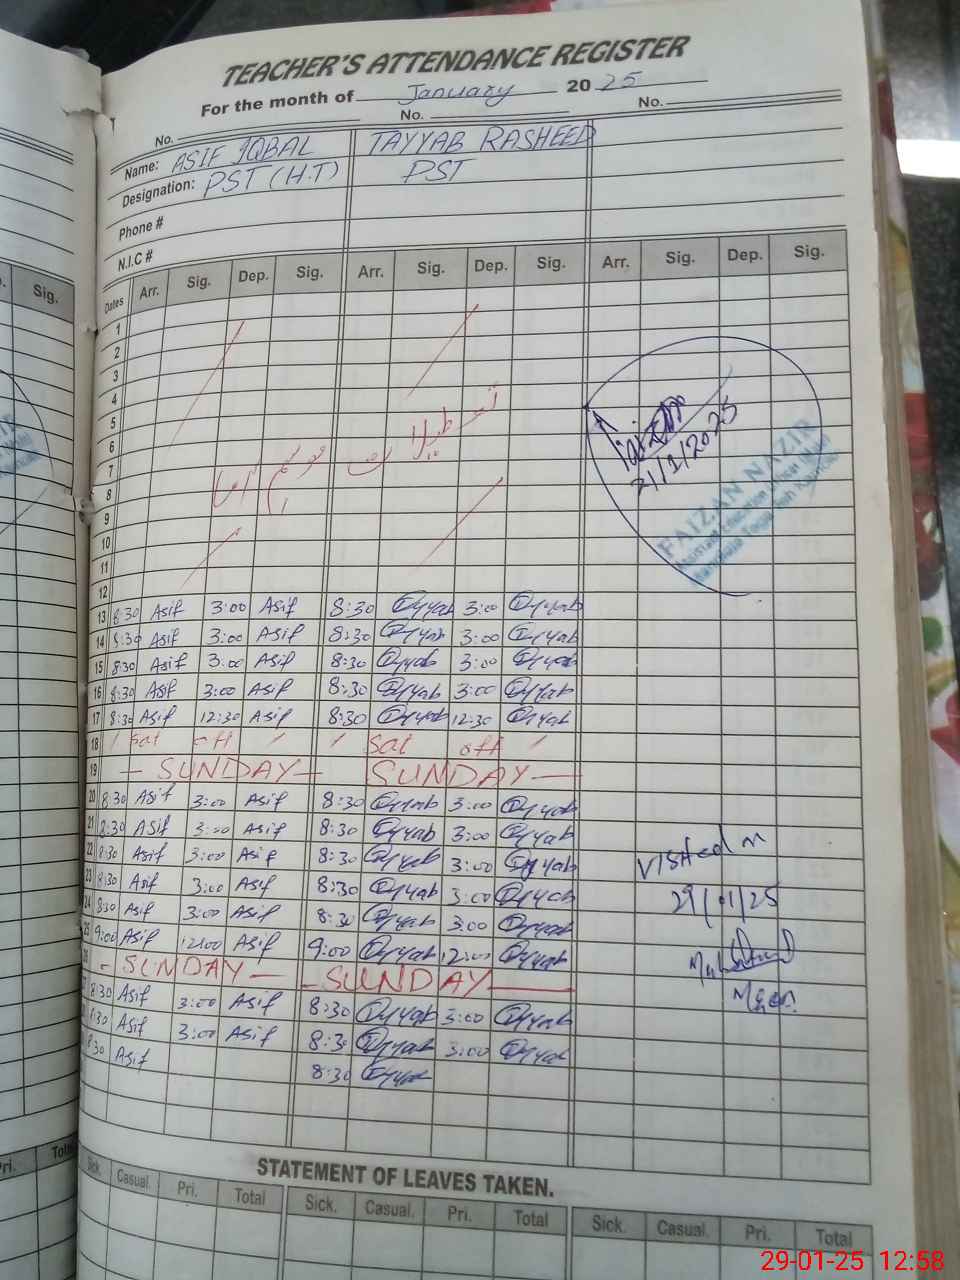 TEACHER'S ATTENDANCE REGISTER
For the month of January 2025
No. No. No.
Name: ASIF IQBAL TAYYAB RASHEED
Designation: PST (H.T) PST
Phone #
N.I.C #
Sig.
Dates Arr. Sig. Dep. Sig. Arr. Sig. Dep. Sig. Arr. Sig. Dep. Sig.
1
2
3
4
5
6
7
8
9
10
11
12
موسم سرما تعطیلات
21/1/2025
FAIZAN NAZIR
13 8:30 Asif 3:00 Asif 8:30 Tayyab 3:00 Tayyab
14 8:30 Asif 3:00 Asif 8:30 Tayyab 3:00 Tayyab
15 8:30 Asif 3:00 Asif 8:30 Tayyab 3:00 Tayyab
16 8:30 Asif 3:00 Asif 8:30 Tayyab 3:00 Tayyab
17 8:30 Asif 12:30 Asif 8:30 Tayyab 12:30 Tayyab
18 Sat off Sat off
19 SUNDAY SUNDAY
20 8:30 Asif 3:00 Asif 8:30 Tayyab 3:00 Tayyab
21 8:30 Asif 3:00 Asif 8:30 Tayyab 3:00 Tayyab
22 8:30 Asif 3:00 Asif 8:30 Tayyab 3:00 Tayyab
23 8:30 Asif 3:00 Asif 8:30 Tayyab 3:00 Tayyab
24 8:30 Asif 3:00 Asif 8:30 Tayyab 3:00 Tayyab
25 9:00 Asif 12:00 Asif 9:00 Tayyab 12:00 Tayyab
SUNDAY SUNDAY
8:30 Asif 3:00 Asif 8:30 Tayyab 3:00 Tayyab
8:30 Asif 3:00 Asif 8:30 Tayyab 3:00 Tayyab
8:30 Asif 8:30 Tayyab
Visited on
29/01/25
STATEMENT OF LEAVES TAKEN.
Pri. Total
Sick. Casual. Pri. Total Sick. Casual. Pri. Total Sick. Casual. Pri. Total
29-01-25 12:58